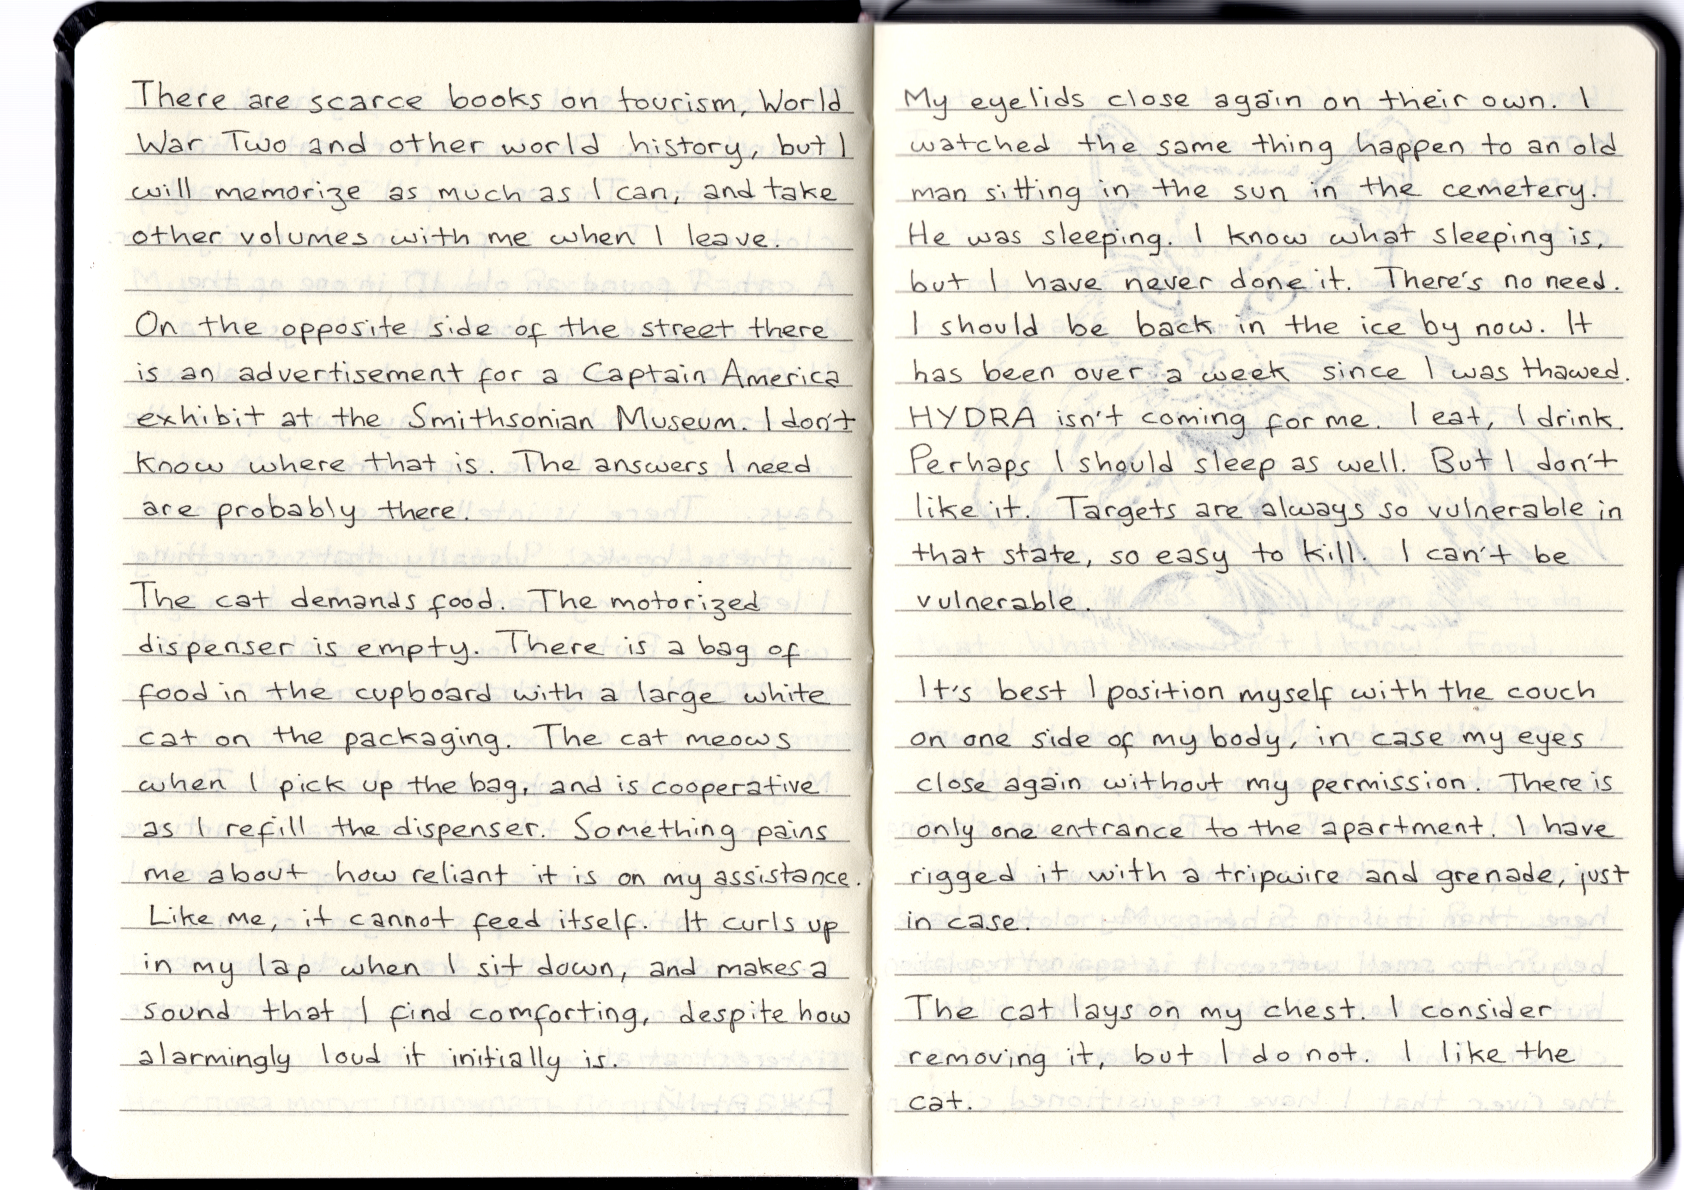 There are scarce books on tourism, World
War Two and other world history, but I
will memorize as much as I can, and take
other volumes with me when I leave.
On the opposite side of the street there
is an advertisement for a Captain America
exhibit at the Smithsonian Museum. I don't
know where that is. The answers I need
are probably there.
The cat demands food. The motorized
dispenser is empty. There is a bag of
food in the cupboard with a large white
cat on the packaging. The cat meows
when I pick up the bag, and is cooperative
as I refill the dispenser. Something pains
me about how reliant it is on my assistance.
Like me, it cannot feed itself. It curls up
in my lap when I sit down, and makes a
sound that I find comforting, despite how
alarmingly loud it initially is.
My eyelids close again on their own. I
watched the same thing happen to an old
man sitting in the sun in the cemetery.
He was sleeping. I know what sleeping is,
but I have never done it. There's no need.
I should be back in the ice by now. It
has been over a week since I was thawed.
HYDRA isn't coming for me. I eat, I drink.
Perhaps I should sleep as well. But I don't
like it. Targets are always so vulnerable in
that state, so easy to kill. I can't be
vulnerable.
It's best I position myself with the couch
on one side of my body, in case my eyes
close again without my permission. There is
only one entrance to the apartment. I have
rigged it with a tripwire and grenade, just
in case.
The cat lays on my chest. I consider
removing it, but I do not. I like the
cat.